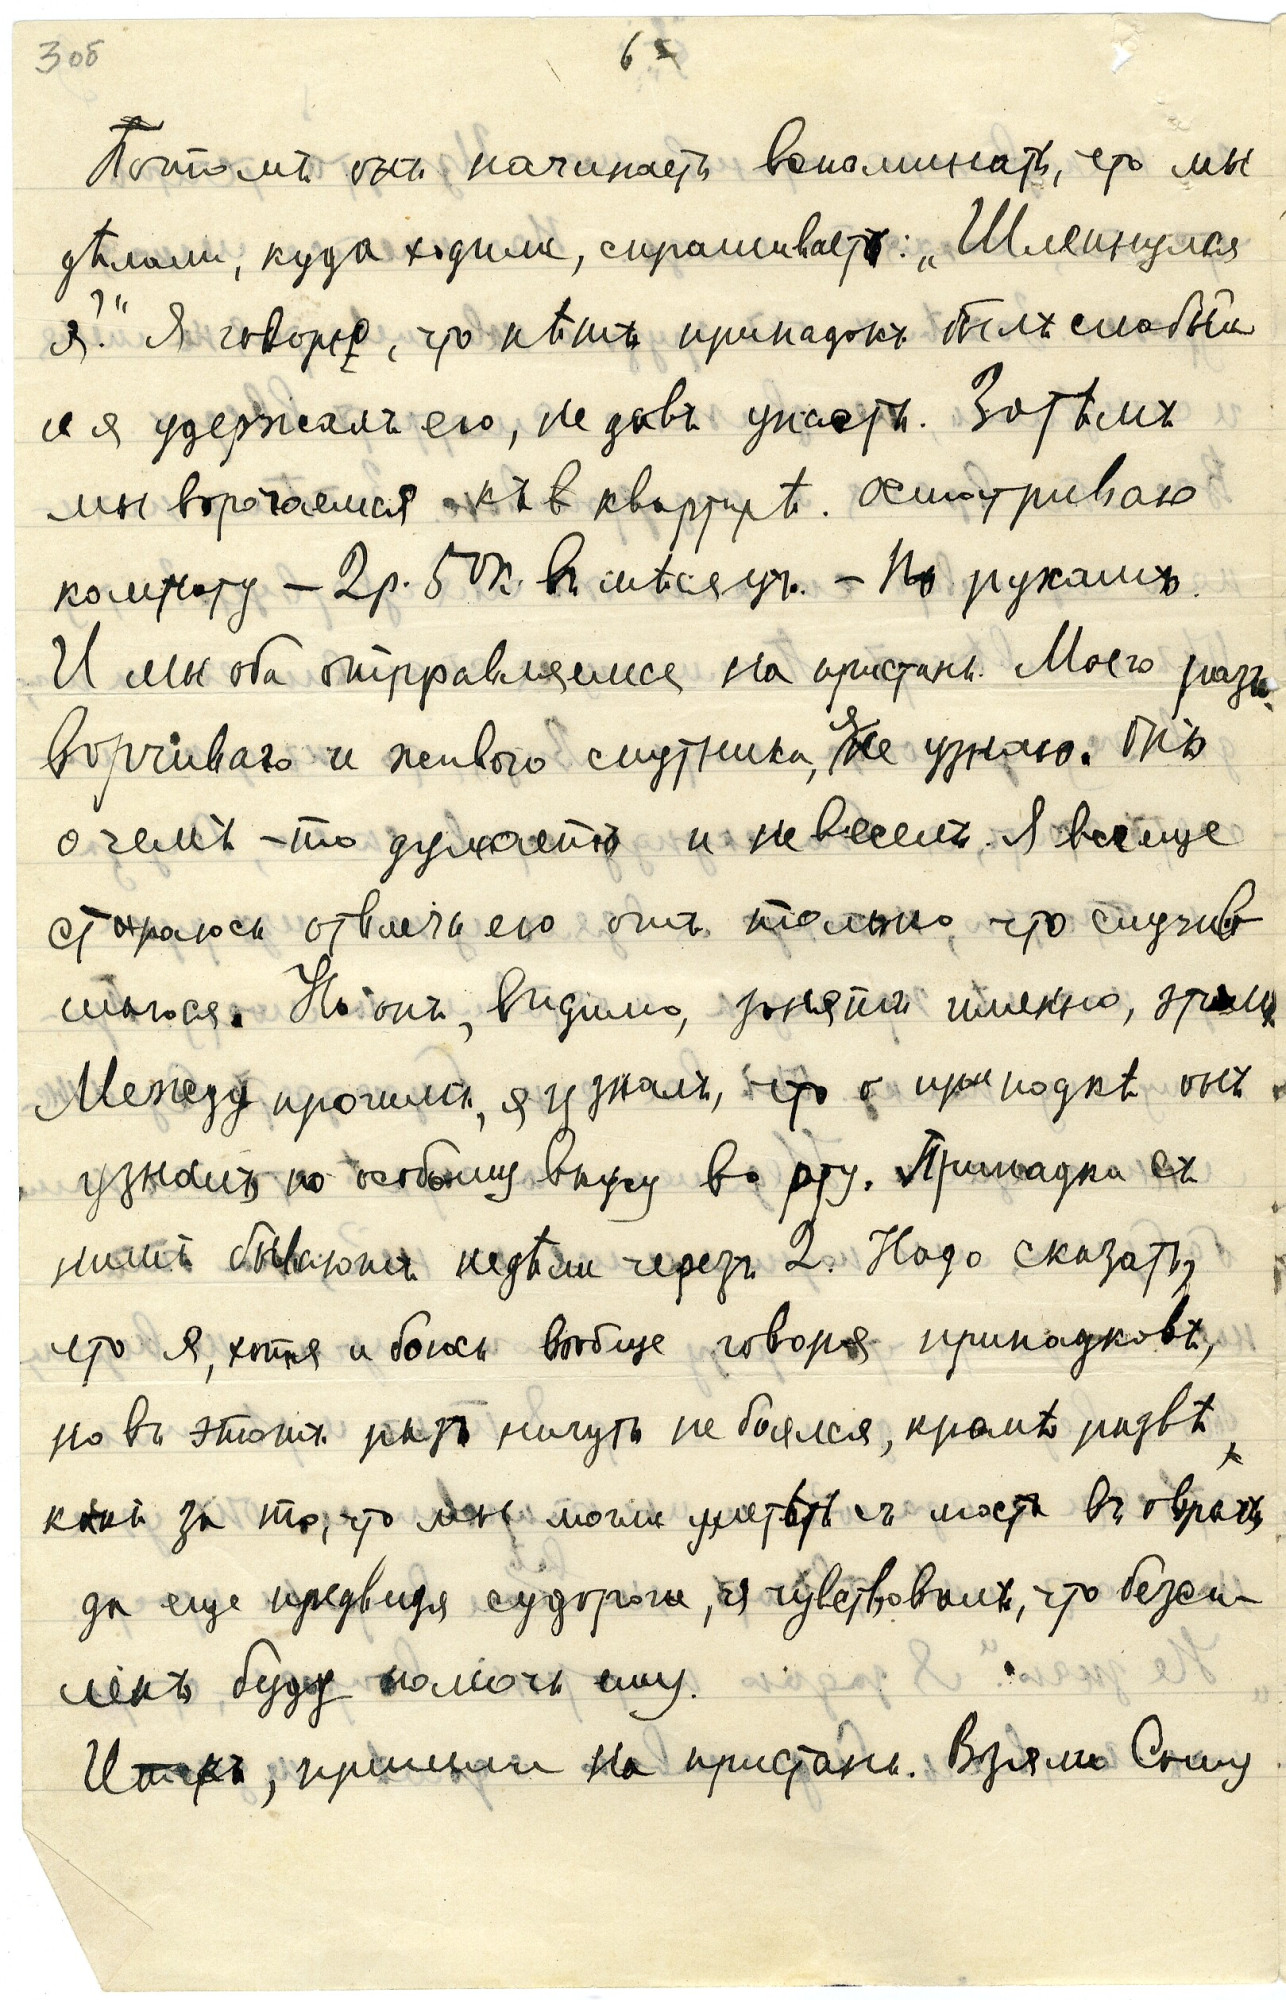 3 об
6
Потомъ онъ начинаетъ вспоминать, что мы
дѣлали, куда ходили, спрашиваетъ: „Шлепнулся
я?“ Я говорю, что нѣтъ припадокъ былъ слабый
и я удержалъ его, не давъ упасть. Затѣмъ
мы ворочаемся къ в квартирѣ. Осматриваю
комнату – 2 р. 50 к. въ мѣсяцъ. – По рукамъ.
И мы оба отправляемся на пристань. Моего разго
ворчиваго и живого спутника, я не узнаю. Онъ
о чемъ-то думаетъ и не веселъ. Я все еще
стараюсь отвлечь его отъ только, что случив
шагося. Но онъ, видимо, занятъ именно, этимъ.
Между прочимъ, я узналъ, что о припадкѣ онъ
узнаетъ по особому вкусу во рту. Припадки съ
нимъ бываютъ недѣли черезъ 2. Надо сказать,
что я, хотя и боюсь вообще говоря припадковъ,
но въ этотъ разъ ничуть не боялся, кромѣ развѣ
какъ за то, что мы могли улетѣть съ моста въ оврагъ
да еще предвидя судороги, я чувствовалъ, что безси-
ленъ буду помочь ему.
Итакъ, пришли на пристань. Взяли Сашу